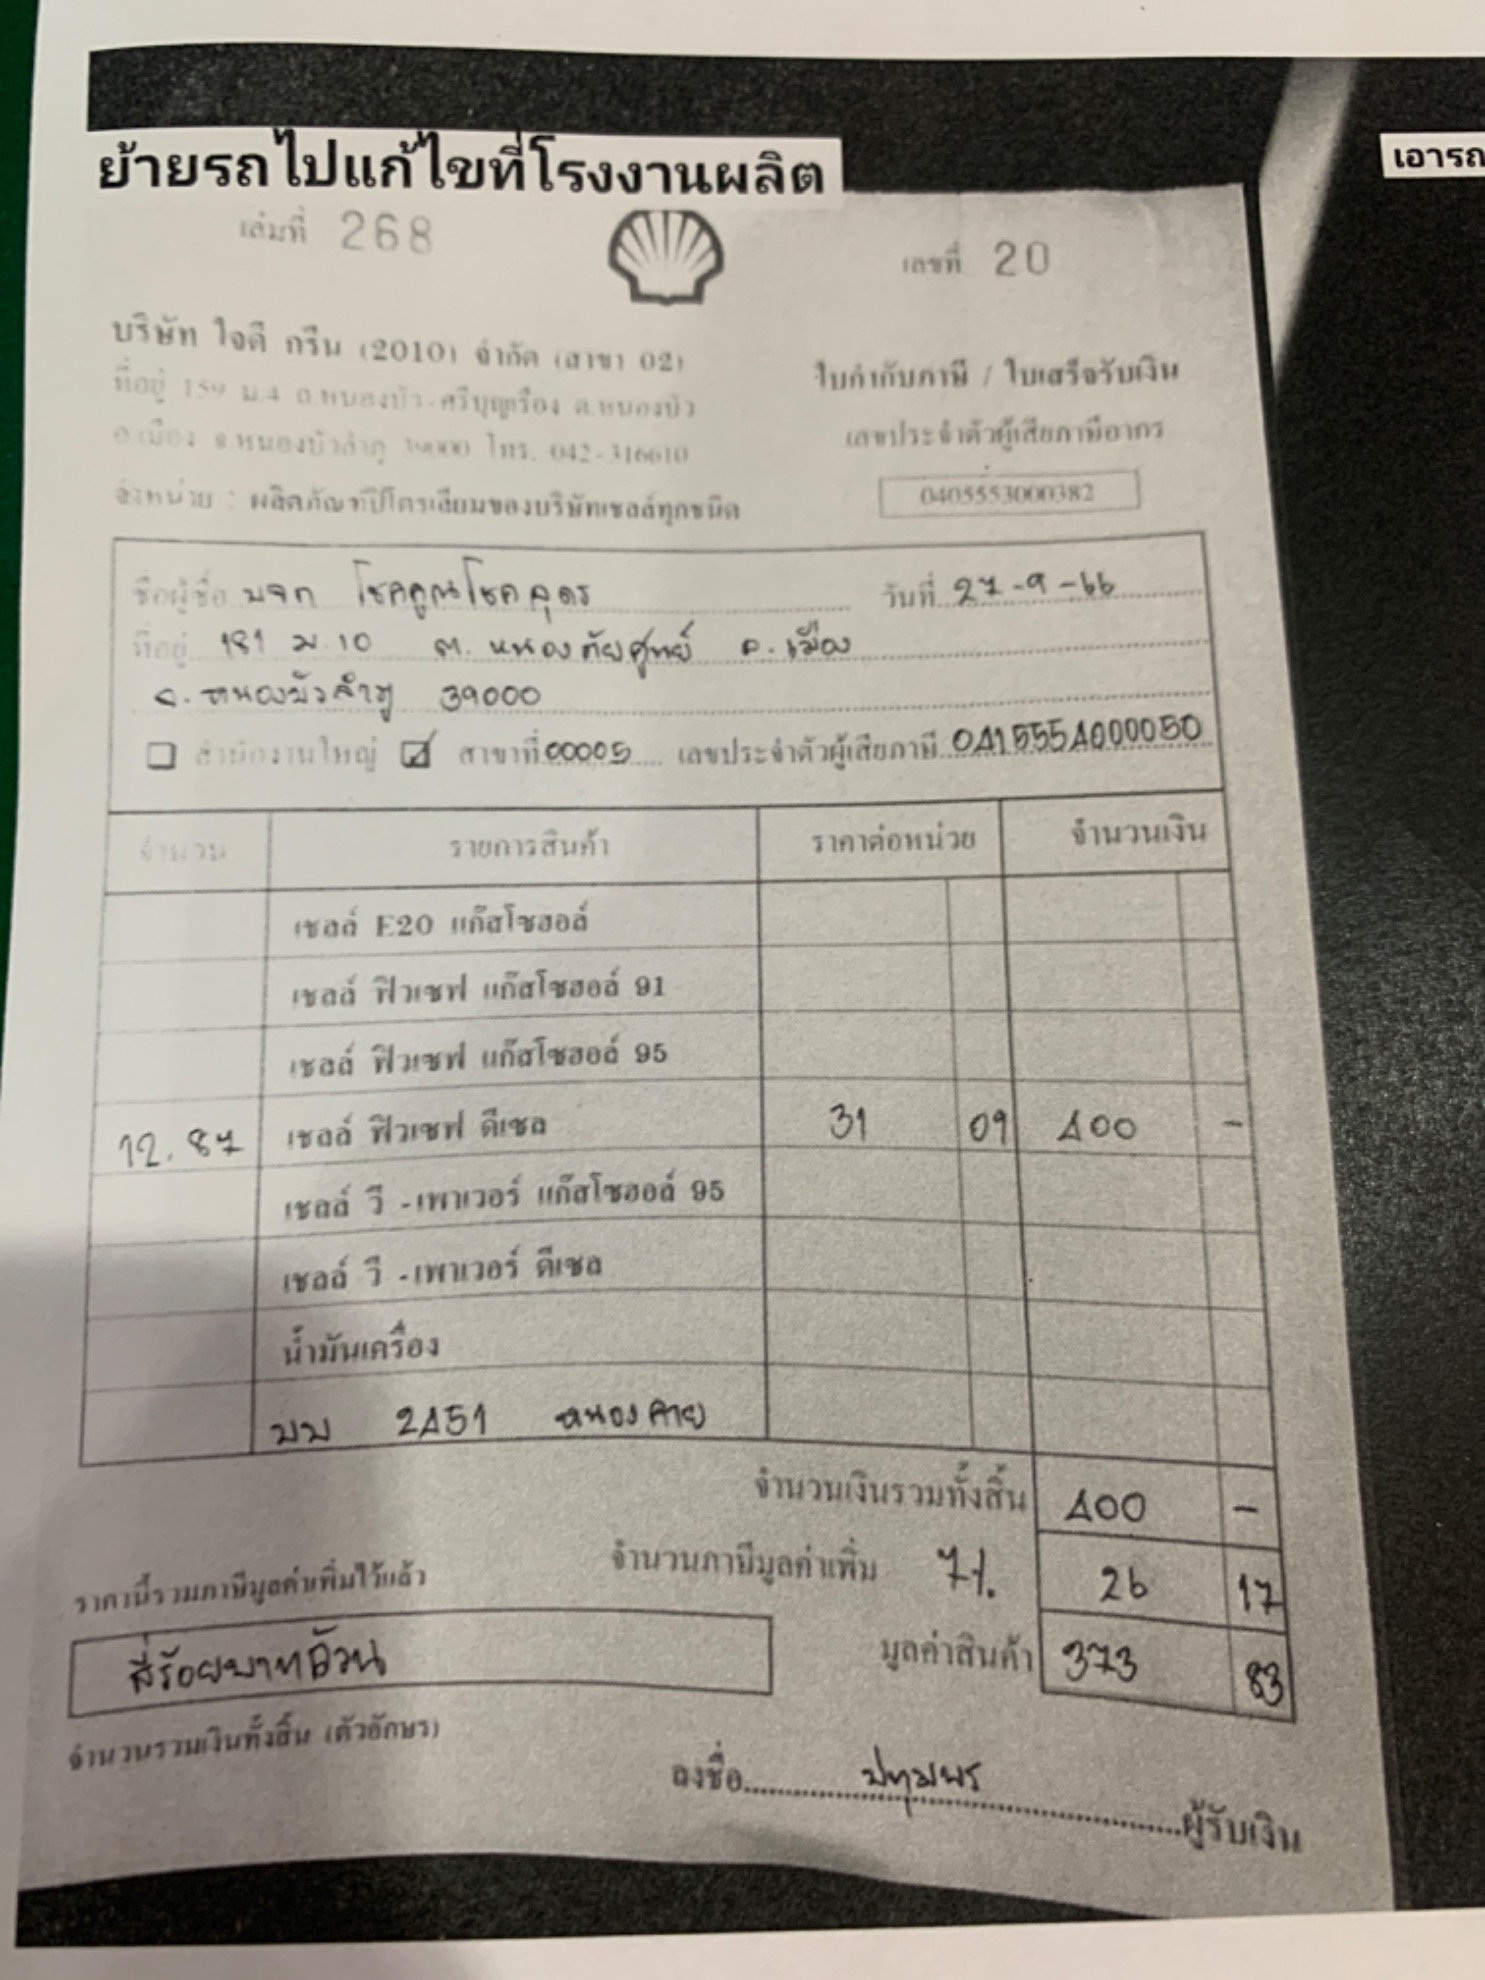 ย้ายรถไปแก้ไขที่โรงงานผลิต
เอารถ
เล่มที่ 268
เลขที่ 20
บริษัท ใจดี กรีน (2010) จำกัด (สาขา 02)
ใบกำกับภาษี / ใบเสร็จรับเงิน
ที่อยู่ 159 ม.4 ถ.หนองบัว-ศรีบุญเรือง ต.หนองบัว
อ.เมือง จ.หนองบัวลำภู 39000 โทร. 042-316610
เลขประจำตัวผู้เสียภาษีอากร
จำหน่าย : ผลิตภัณฑ์ปิโตรเลียมของบริษัทเชลล์ทุกชนิด
0405553000382
ชื่อผู้ซื้อ บจก โชคคูณโชคอุดร วันที่ 27-9-66
ที่อยู่ 181 ม.10 ต. หนองภัยศูนย์ อ. เมือง
จ. หนองบัวลำภู 39000
สำนักงานใหญ่ สาขาที่ 00005 เลขประจำตัวผู้เสียภาษี 0415554000050
จำนวน รายการสินค้า ราคาต่อหน่วย จำนวนเงิน
เชลล์ E20 แก๊สโซฮอล์
เชลล์ ฟิวเซฟ แก๊สโซฮอล์ 91
เชลล์ ฟิวเซฟ แก๊สโซฮอล์ 95
12.87 เชลล์ ฟิวเซฟ ดีเซล 31 09 400 -
เชลล์ วี -เพาเวอร์ แก๊สโซฮอล์ 95
เชลล์ วี -เพาเวอร์ ดีเซล
น้ำมันเครื่อง
บบ 2451 หนองคาย
จำนวนเงินรวมทั้งสิ้น 400 -
ราคานี้รวมภาษีมูลค่าเพิ่มไว้แล้ว
จำนวนภาษีมูลค่าเพิ่ม 7% 26 17
สี่ร้อยบาทถ้วน
มูลค่าสินค้า 373 83
จำนวนรวมเงินทั้งสิ้น (ตัวอักษร)
ลงชื่อ ปทุมพร ผู้รับเงิน